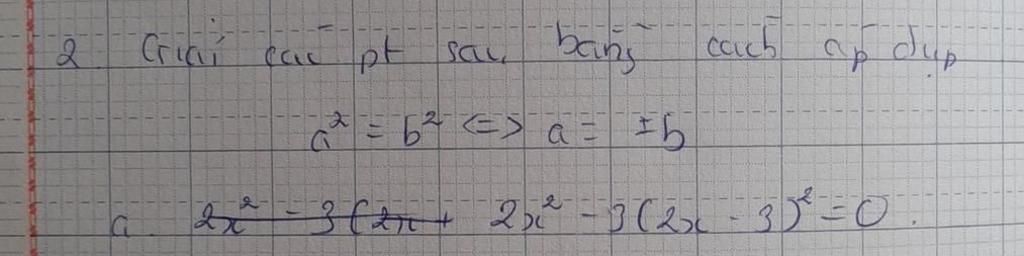 2. Giải các pt sau bằng cách áp dụng
a² = b² <=> a = ±b
a. 2x² - 3(2x + 2x² - 3(2x - 3)² = 0.